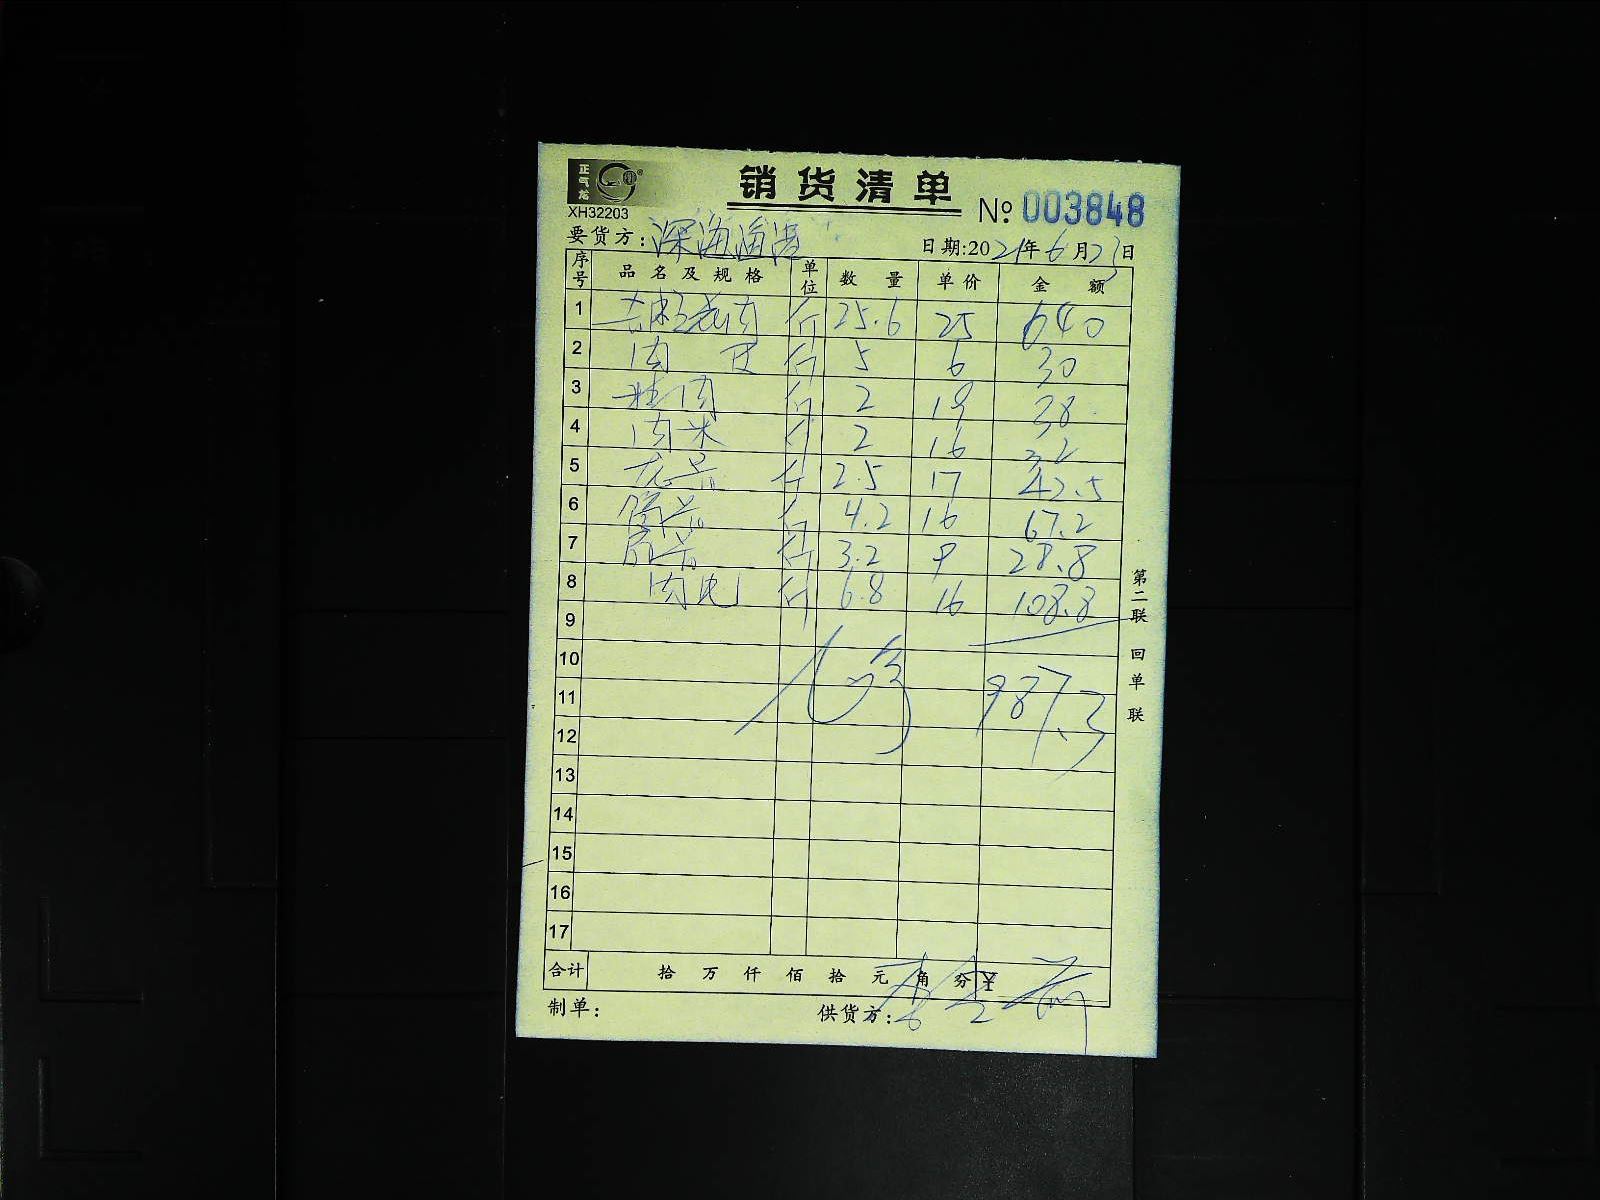 正气龙
XH32203
销货清单
№ 003848
要货方: 深海渔港
日期:2021年6月23日
序号 品名及规格 单位 数量 单价 金额
1 斤 25.6 25 640
2 肉皮 斤 5 6 30
3 精肉 斤 2 19 38
4 肉米 斤 2 16 32
5 龙骨 斤 2.5 17 42.5
6 筒骨 斤 4.2 16 67.2
7 斤 3.2 9 28.8
8 斤 6.8 16 108.8
9
10
11 987.3
12
13
14
15
16
17
合计 拾 万 仟 佰 拾 元 角 分 ¥
制单: 供货方:
第二联 回单联